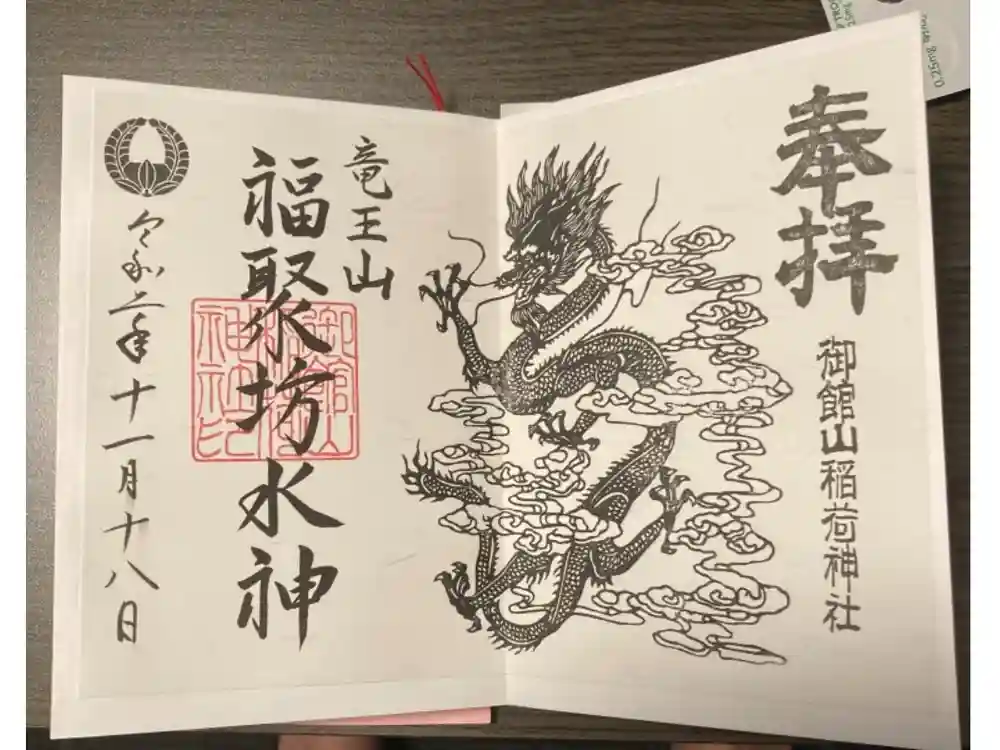 奉拝
御館山稲荷神社
竜王山
福聚坊水神
御館山
稲荷
神社印
令和二年十一月十八日
0.25mg